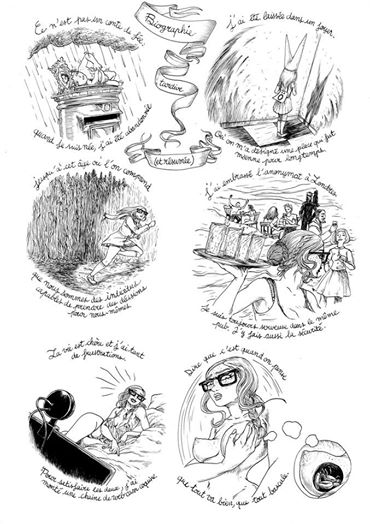 Ce n'est pas un conte de fée.
Quand je suis née, j'ai été abandonnée
Biographie
tardive
(et résumée)
j'ai été laissée dans un foyer.
Où on m'a désigné une pièce qui fut
mienne pour longtemps.
Jusqu'à cet âge où l'on comprend
que nous sommes des individus
capables de prendre des décisions
pour nous-mêmes.
j'ai embrassé l'anonymat à Londres
Je suis toujours serveuse dans le même
pub. J'y fais aussi la sécurité.
La vie est chère et j'ai tant
de frustrations.
Pour satisfaire les deux, j'ai
monté une chaîne de webcam coquine
Dire que c'est quand on pense
que tout va bien, que tout bascule.